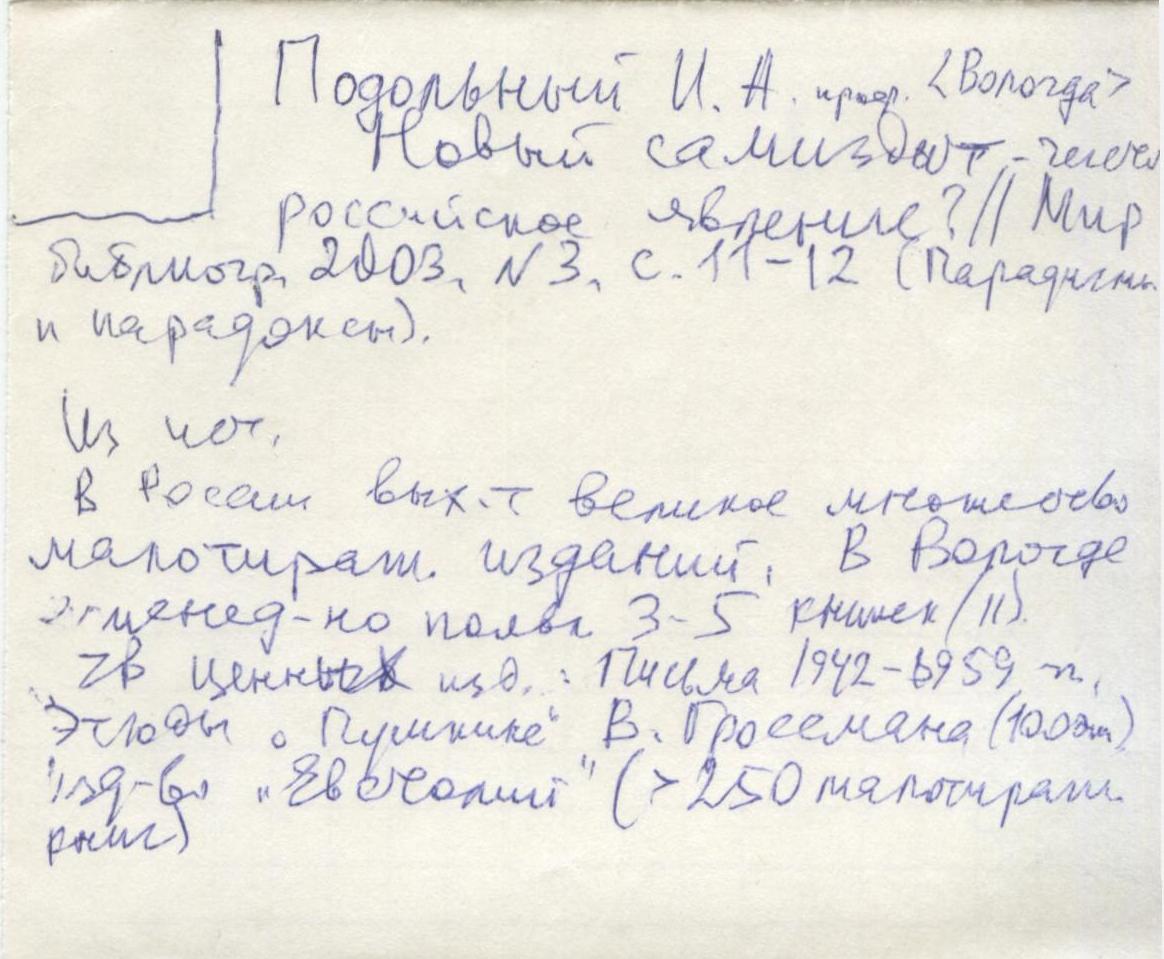 Подольный И. А. проф. <Вологда>
Новый самиздат - чисто
российское явление? // Мир
библиогр. 2003, N 3, с. 11-12 (Парадигмы
и парадоксы).
Из чот.
В России вых-т великое множество
малотираж. изданий. В Вологде
еженед-но появл 3-5 книжек (11).
ценных изд. : Письма 1942-1959 гг.
Этюды о Пушкине" В. Гроссмана (100 экз)
Изд-во „Евстолий" (>250 малотираж.
книг)